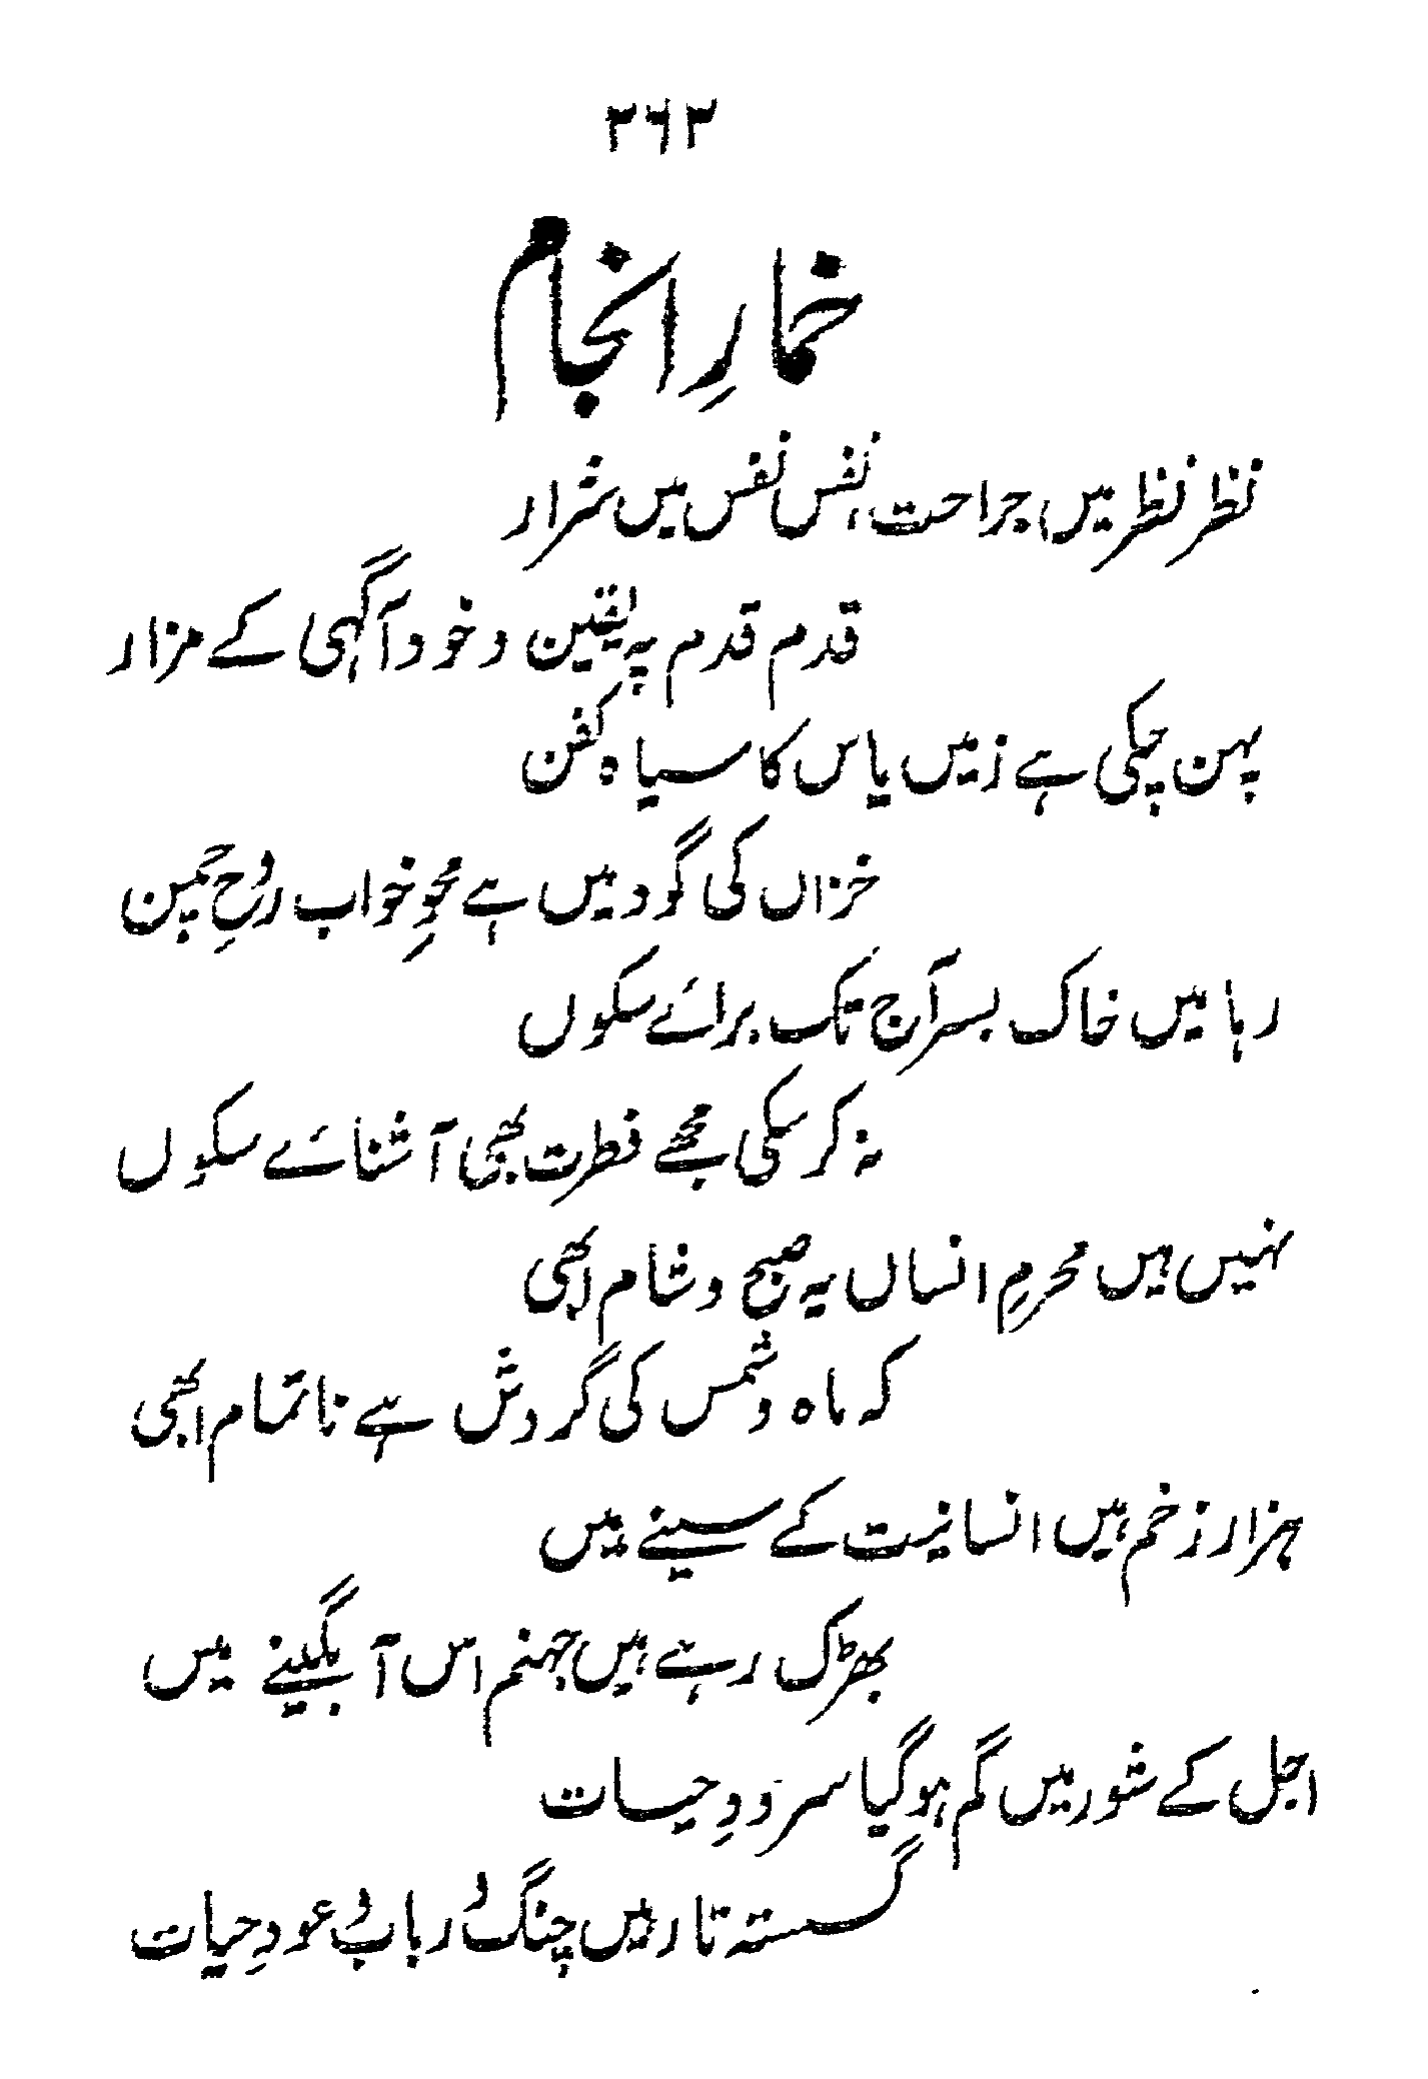 ۳۶۳
خمارِ انجام
نظر نظر میں جراحت، نفس نفس میں شرار
قدم قدم پہ یقین و خود آگہی کے مزار
پہن چکی ہے زمیں یاس کا سیاہ کفن
خزاں کی گود میں ہے محوِ خواب روُحِ چمن
رہا میں خاک بسر آج تک برائے سکوں
نہ کر سکی مجھے فطرت بھی آشنائے سکوں
نہیں ہیں محرمِ انساں یہ صبح و شام ابھی
کہ ماہ و شمس کی گردش ہے ناتمام ابھی
ہزار زخم ہیں انسانیت کے سینے میں
بھڑک رہے ہیں جہنم اس آبگینے میں
اجل کے شور میں گم ہوگیا سرودِ حیات
گسستہ تار ہیں چنگ و رباب و عودِ حیات